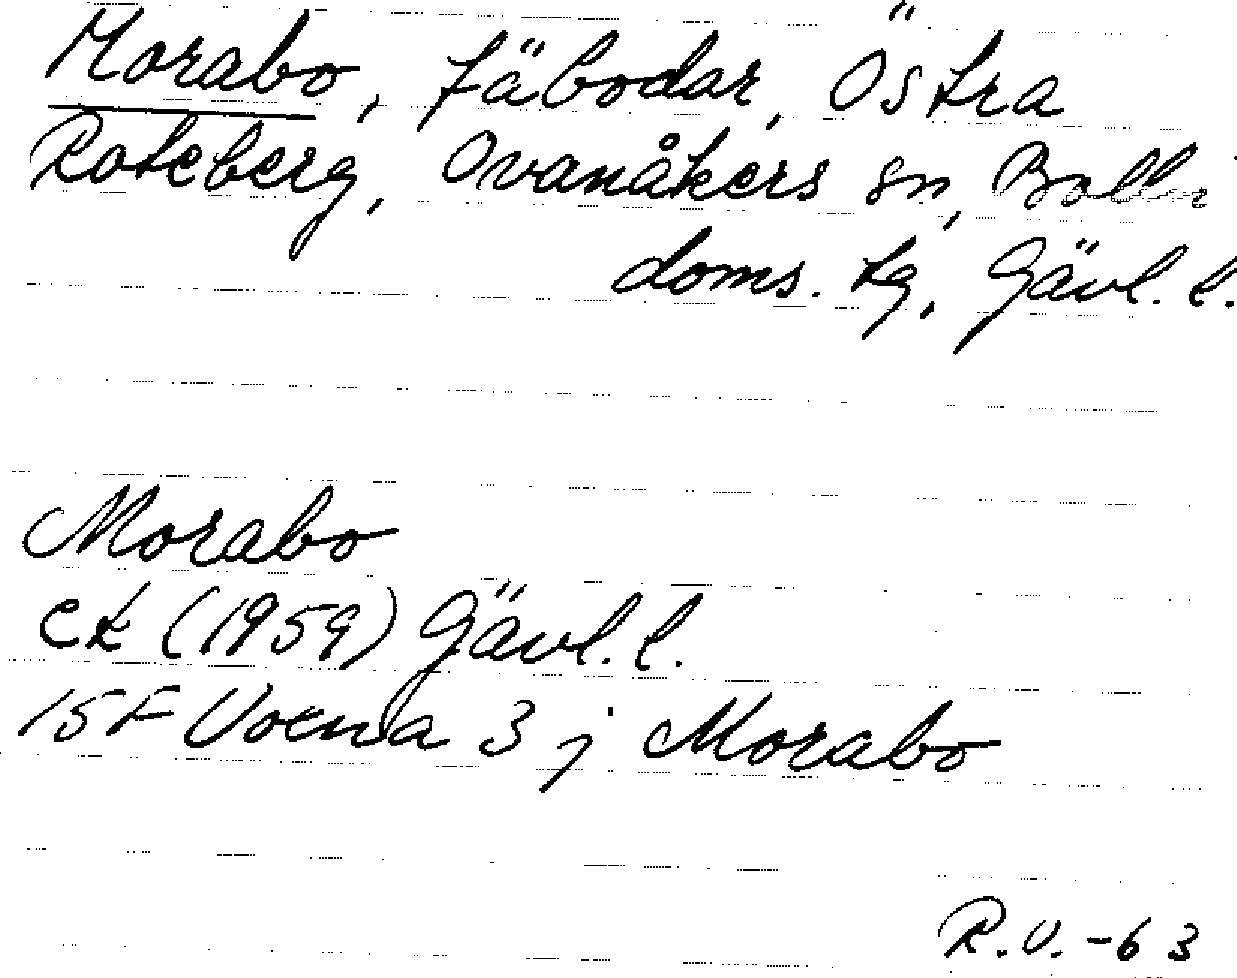 Morabo, fäbodar, Östra
Roteberg, Ovanåkers sn, Bolln
doms. tg, Gävl. l.
Morabo
ek (1959) Gävl. l.
15F Voxna 3 j Morabo
R.V. -63